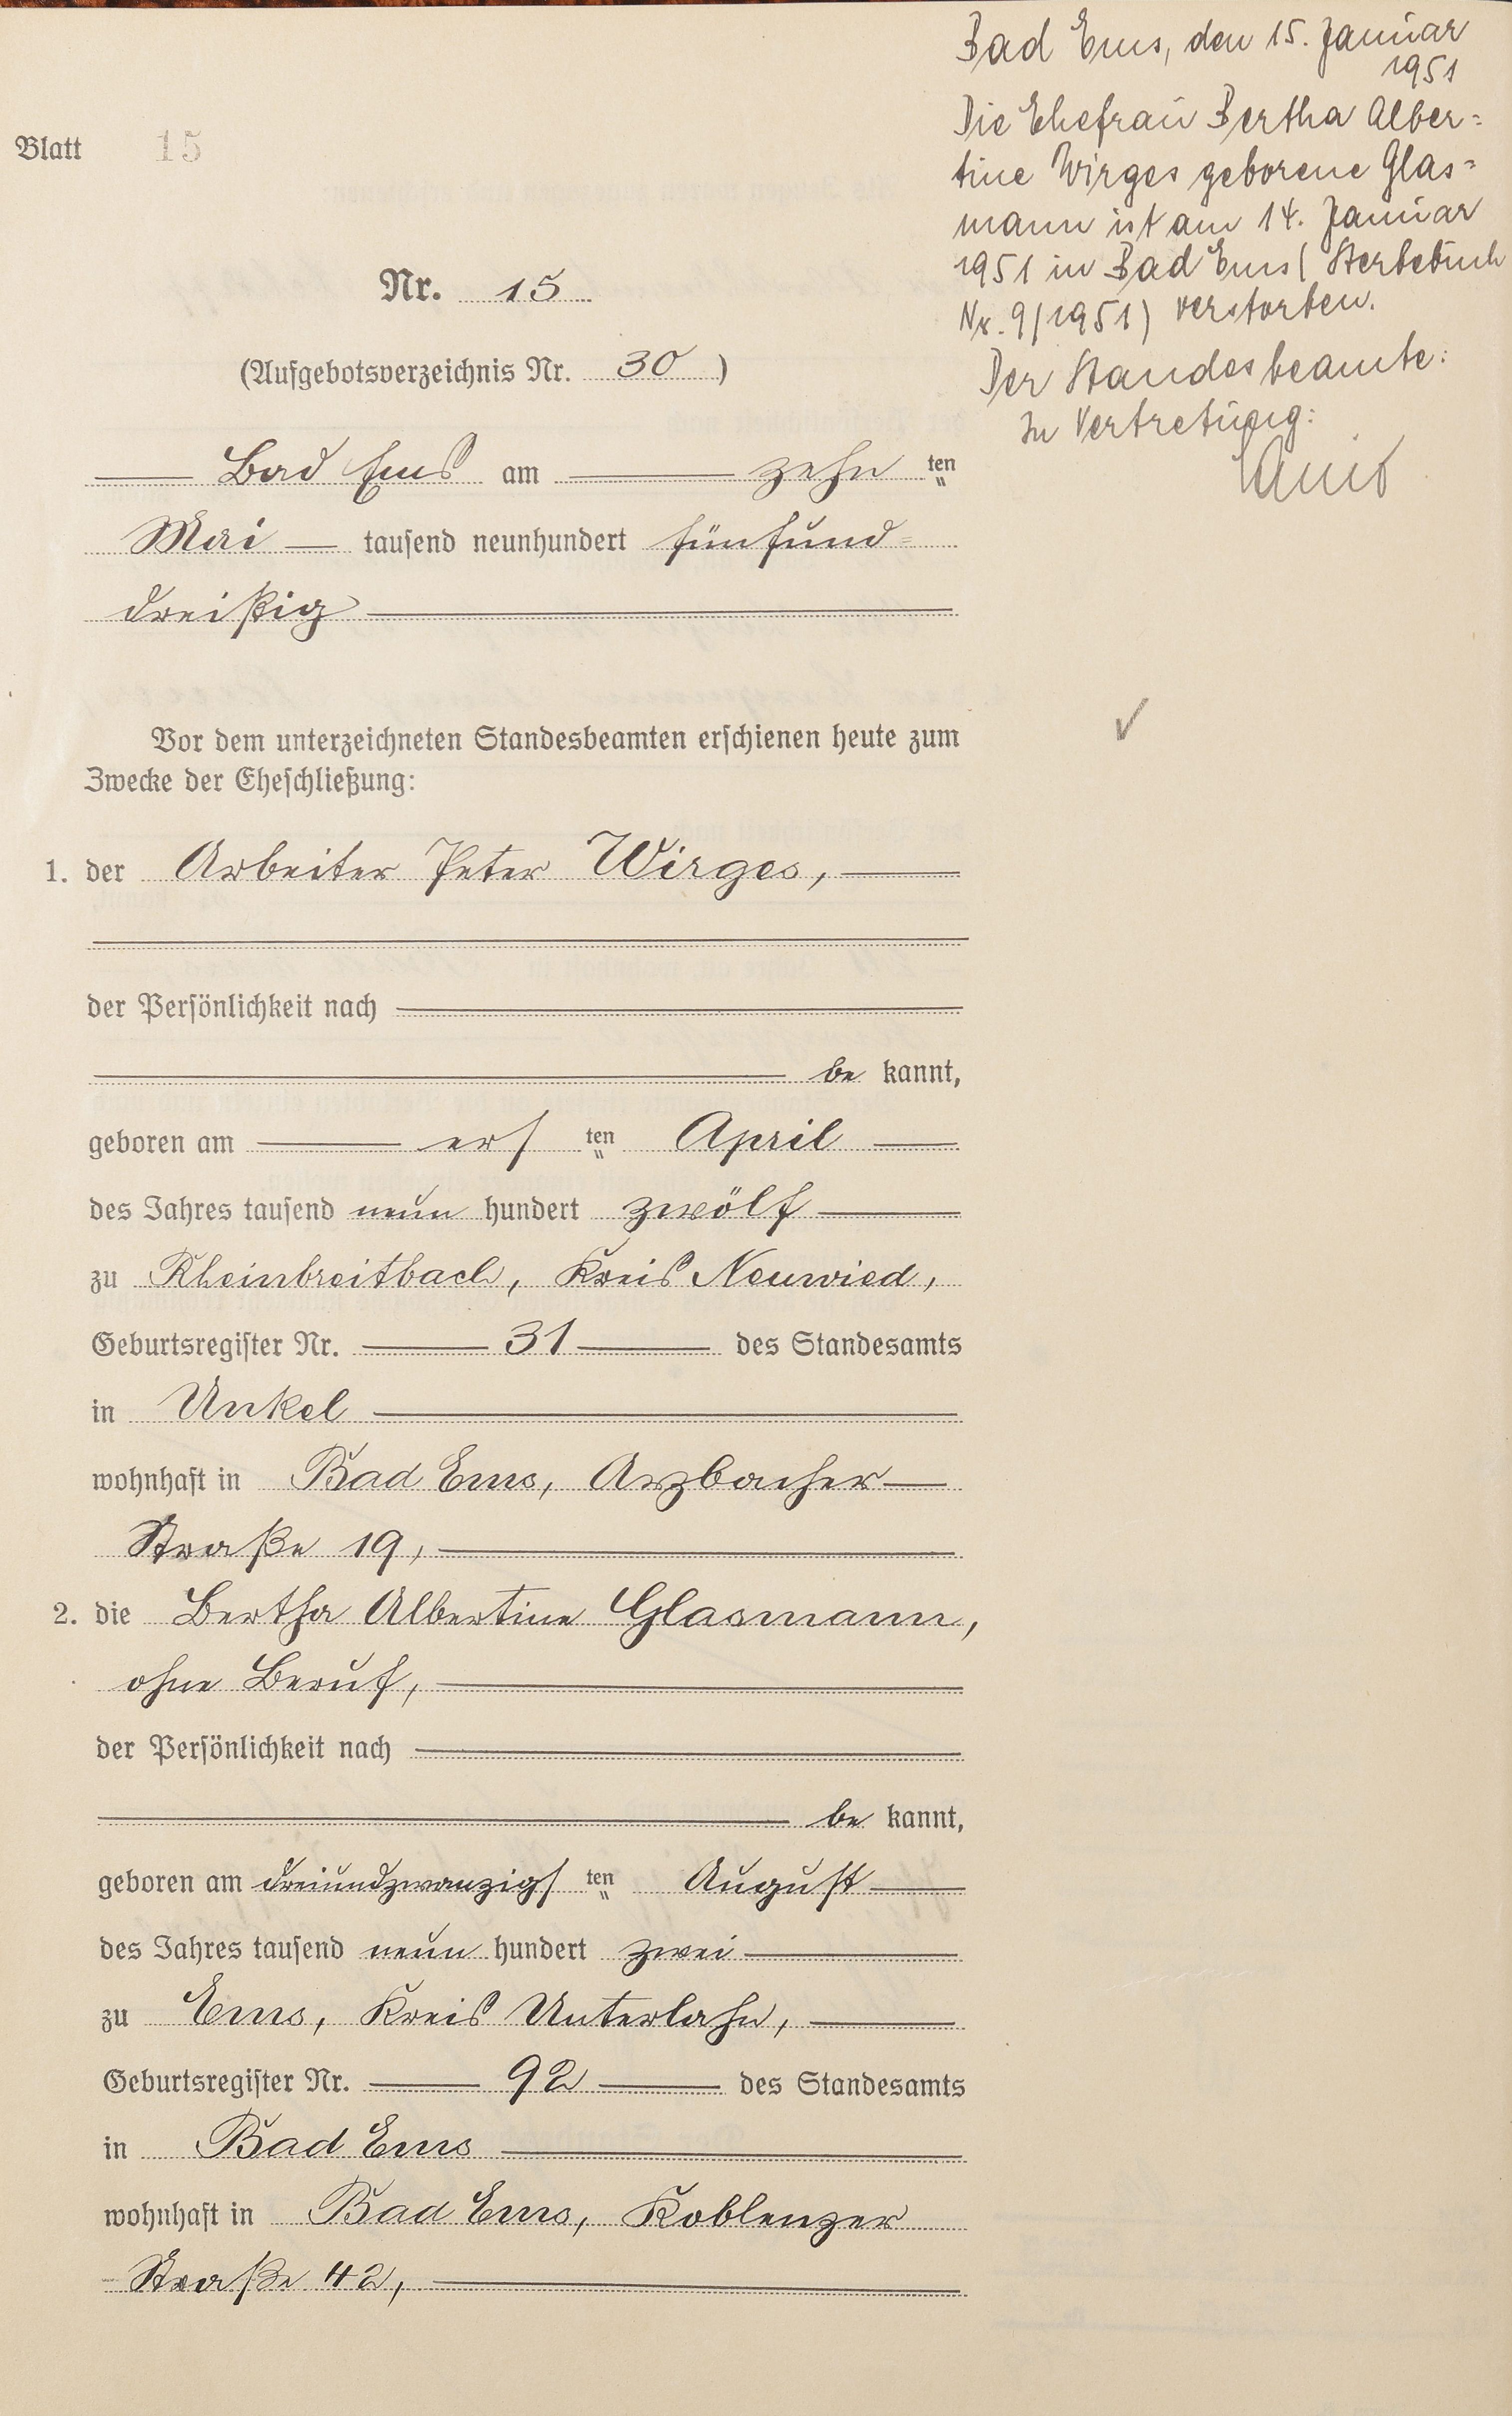 Blatt 15
Nr. 15
(Aufgebotsverzeichnis Nr. 30)
Bad Ems am zehn ten
Mai tausend neunhundert fünfund=
dreißig
Vor dem unterzeichneten Standesbeamten erschienen heute zum
Zwecke der Eheschließung:
1. der Arbeiter Peter Wirges,
der Persönlichkeit nach
be kannt,
geboren am ers ten April
des Jahres tausend neun hundert zwölf
zu Rheinbreitbach, Kreis Neuwied,
Geburtsregister Nr. 31 des Standesamts
in Unkel
wohnhaft in Bad Ems, Arzbacher
Straße 19,
2. die Bertha Albertine Glasmann,
ohne Beruf,
der Persönlichkeit nach
be kannt,
geboren am dreiundzwanzigs ten August
des Jahres tausend neun hundert zwei
zu Ems, Kreis Unterlahn,
Geburtsregister Nr. 92 des Standesamts
in Bad Ems
wohnhaft in Bad Ems, Koblenzer
Straße 42,
Bad Ems, den 15. Januar
1951
Die Ehefrau Bertha Alber=
tine Wirges geborene Glas=
mann ist am 14. Januar
1951 in Bad Ems (Sterbebuch
Nr. 9/1951) verstorben.
Der Standesbeamte:
In Vertretung: